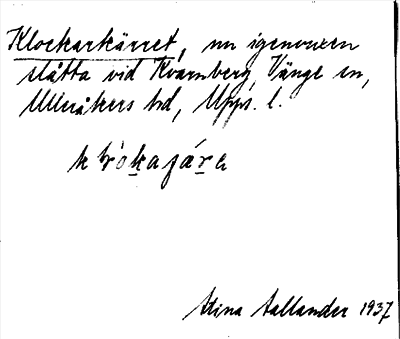 Klockarkärret, nu igenvuxen
slåtta vid Kvarnberg, Vänge sn,
Ulleråkers hd, Upps. l.
Stina Aallander 1937